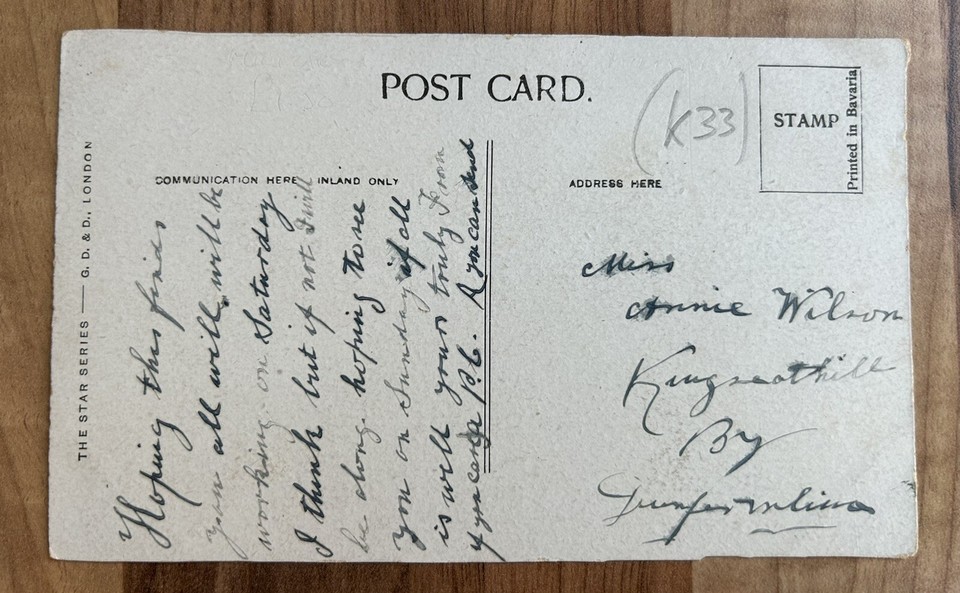 POST CARD.
(K33)
STAMP
Printed in Bavaria
THE STAR SERIES — G. D. & D., LONDON
COMMUNICATION HERE INLAND ONLY
ADDRESS HERE
Hoping this finds
you all well will be
working on Saturday
I think but if not I will
be along hoping to see
you on Sunday if all
is well yours truly From
R you can send
if you can a P.C.
Miss
Annie Wilson
Kingseathill
By
Dunfermline